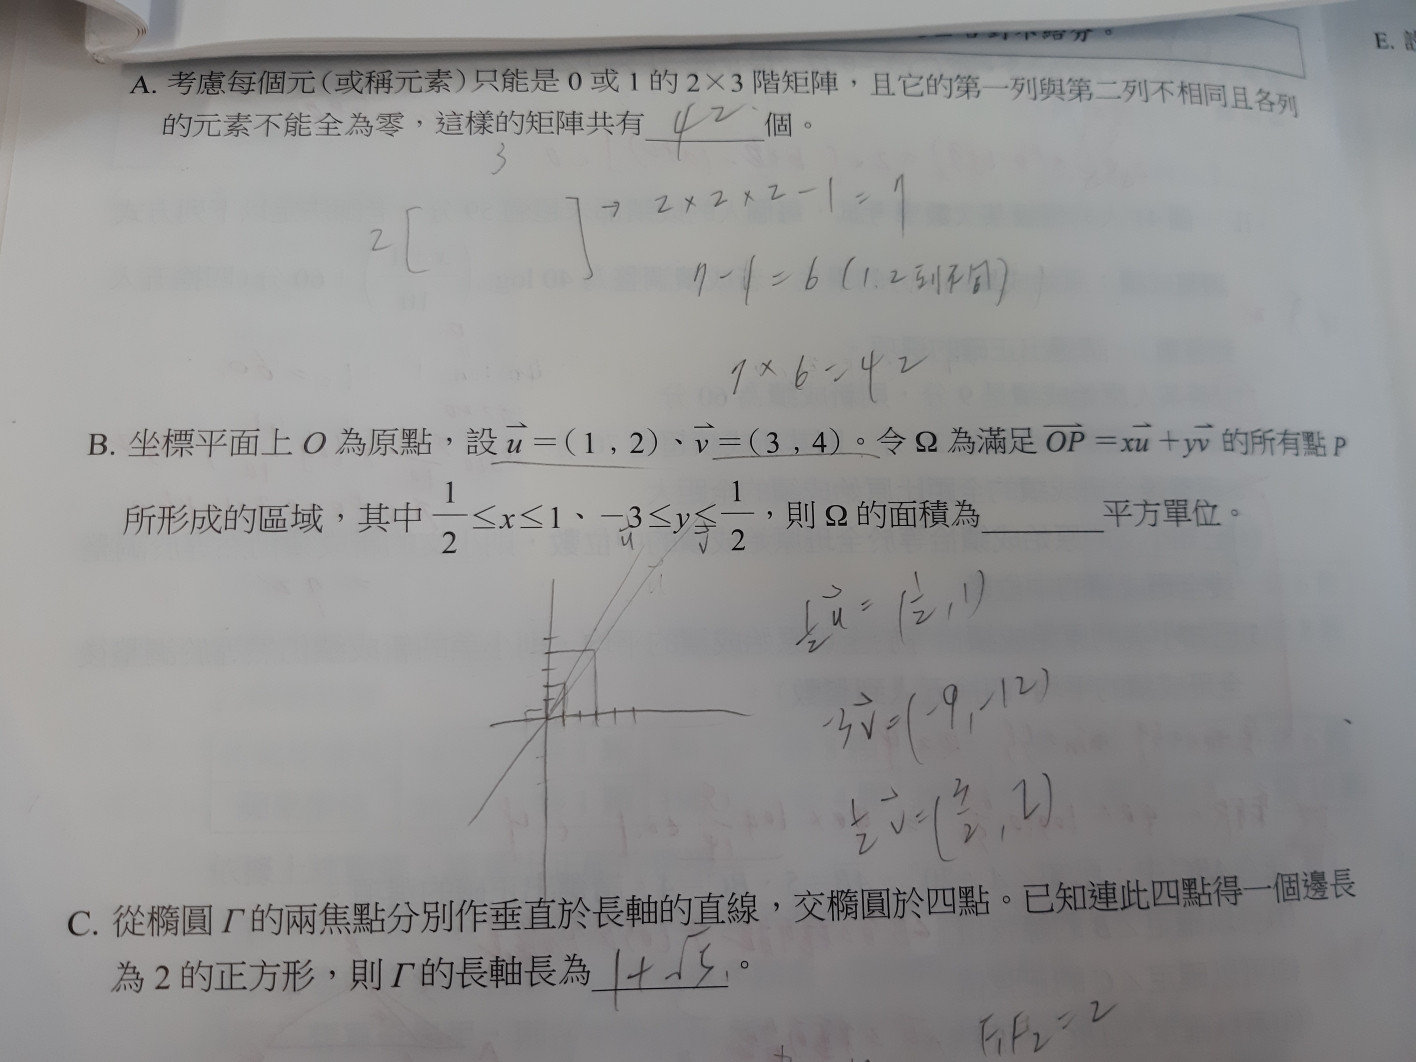 E.
A. 考慮每個元(或稱元素)只能是 0 或 1 的 2×3 階矩陣，且它的第一列與第二列不相同且各列
的元素不能全為零，這樣的矩陣共有 42 個。
3
2 [ ] → 2×2×2-1=7
7-1=6 (1.2列不同)
7×6=42
B. 坐標平面上 O 為原點，設 u⃗=(1,2)、v⃗=(3,4)。令 Ω 為滿足 OP⃗=xu⃗+yv⃗ 的所有點 P
所形成的區域，其中 1/2≤x≤1、-3≤y≤1/2，則 Ω 的面積為______平方單位。
u⃗ v⃗
1/2 u⃗=(1/2,1)
-3v⃗=(-9,-12)
1/2 v⃗=(3/2,2)
C. 從橢圓 Γ 的兩焦點分別作垂直於長軸的直線，交橢圓於四點。已知連此四點得一個邊長
為 2 的正方形，則 Γ 的長軸長為 1+√5 。
F₁F₂=2